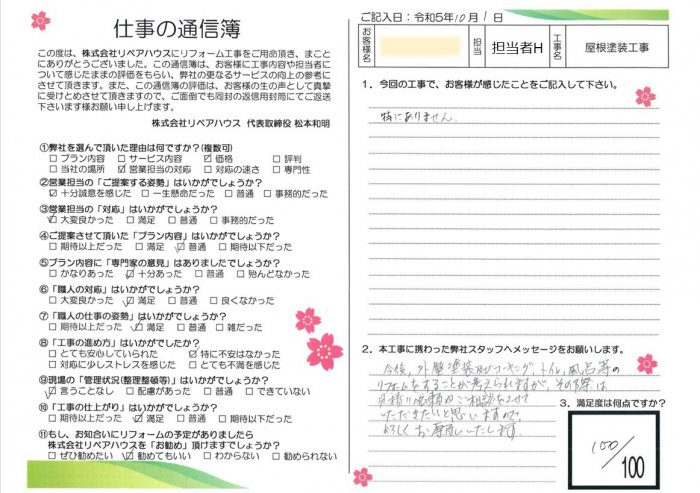 仕事の通信簿
この度は、株式会社リペアハウスにリフォーム工事をご用命頂き、まこと
にありがとうございました。この通信簿は、お客様に工事内容や担当者に
ついて感じたままの評価をもらい、弊社の更なるサービスの向上の参考に
させて頂きます。また、この通信簿の評価は、お客様の生の声として真摯
に受けとめさせて頂きますので、ご面倒でも同封の返信用封筒にてご返送
下さいます様お願い申し上げます。
株式会社リペアハウス 代表取締役 松本和明
①弊社を選んで頂いた理由は何ですか?(複数可)
□プラン内容 □サービス内容 ☑価格 □評判
□当社の場所 ☑営業担当の対応 □対応の速さ □専門性
②営業担当の「ご提案する姿勢」はいかがでしょうか?
☑十分誠意を感じた □一生懸命だった □普通 □事務的だった
③営業担当の「対応」はいかがでしょうか?
☑大変良かった □満足 □普通 □事務的だった
④ご提案させて頂いた「プラン内容」はいかがでしょうか?
□期待以上だった □満足 ☑普通 □期待以下だった
⑤プラン内容に「専門家の意見」はありましたでしょうか?
□かなりあった ☑十分あった □普通 □殆んどなかった
⑥「職人の対応」はいかがでしょうか?
□大変良かった ☑満足 □普通 □良くなかった
⑦「職人の仕事の姿勢」はいかがでしょうか?
□期待以上だった ☑満足 □普通 □雑だった
⑧「工事の進め方」はいかがでしたか?
□とても安心していられた ☑特に不安はなかった
□対応に少しストレスを感じた □とても不満を感じた
⑨現場の「管理状況(整理整頓等)」はいかがでしょうか?
☑言うことなし □配慮があった □普通 □できていない
⑩「工事の仕上がり」はいかがでしょうか?
□期待以上だった ☑満足 □普通 □期待以下だった
⑪もし、お知合いにリフォームの予定がありましたら
株式会社リペアハウスを「お勧め」頂けますでしょうか?
□ぜひ勧めたい ☑勧めてもいい □わからない □勧められない
ご記入日:令和5年10月1日
お客様名
担当
担当者H
工事名
屋根塗装工事
1.今回の工事で、お客様が感じたことをご記入して下さい。
特にありません.
2.本工事に携わった弊社スタッフへメッセージをお願いします。
今後、外壁塗装及びコーキング、トイレ、風呂等の
リフォームをすることが考えられますが、その際は
見積り依頼やご相談をさせて
いただきたいと思いますので、
よろしくお願いいたします.
3.満足度は何点ですか?
100/100